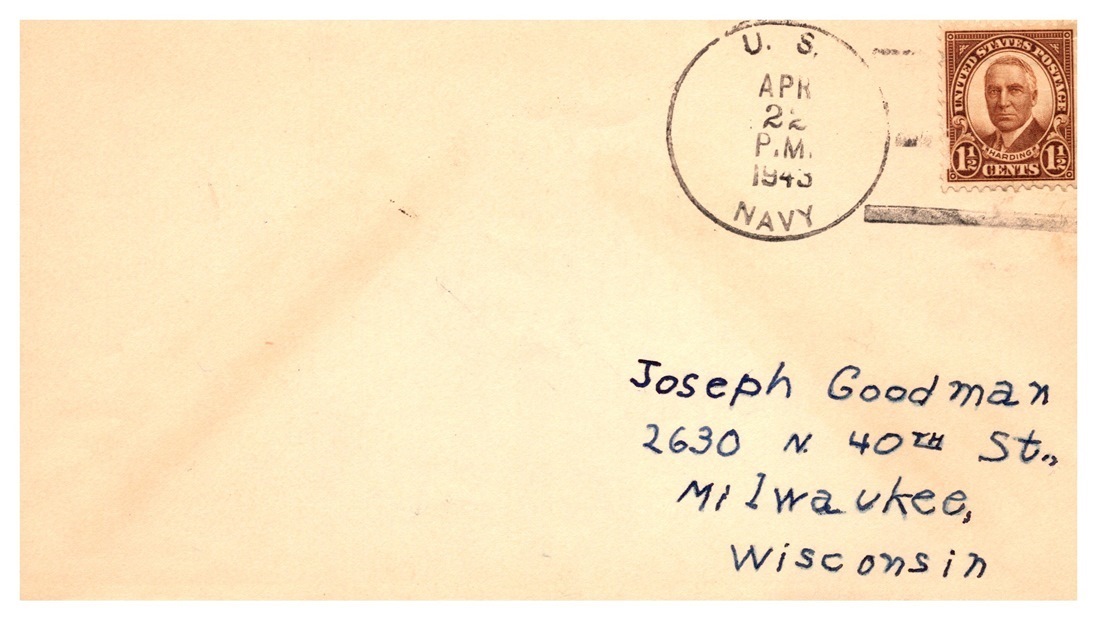 U. S.
APR
22
P.M.
1943
NAVY
UNITED STATES POSTAGE
HARDING
1½ CENTS 1½
Joseph Goodman
2630 N. 40TH St.,
Milwaukee,
Wisconsin